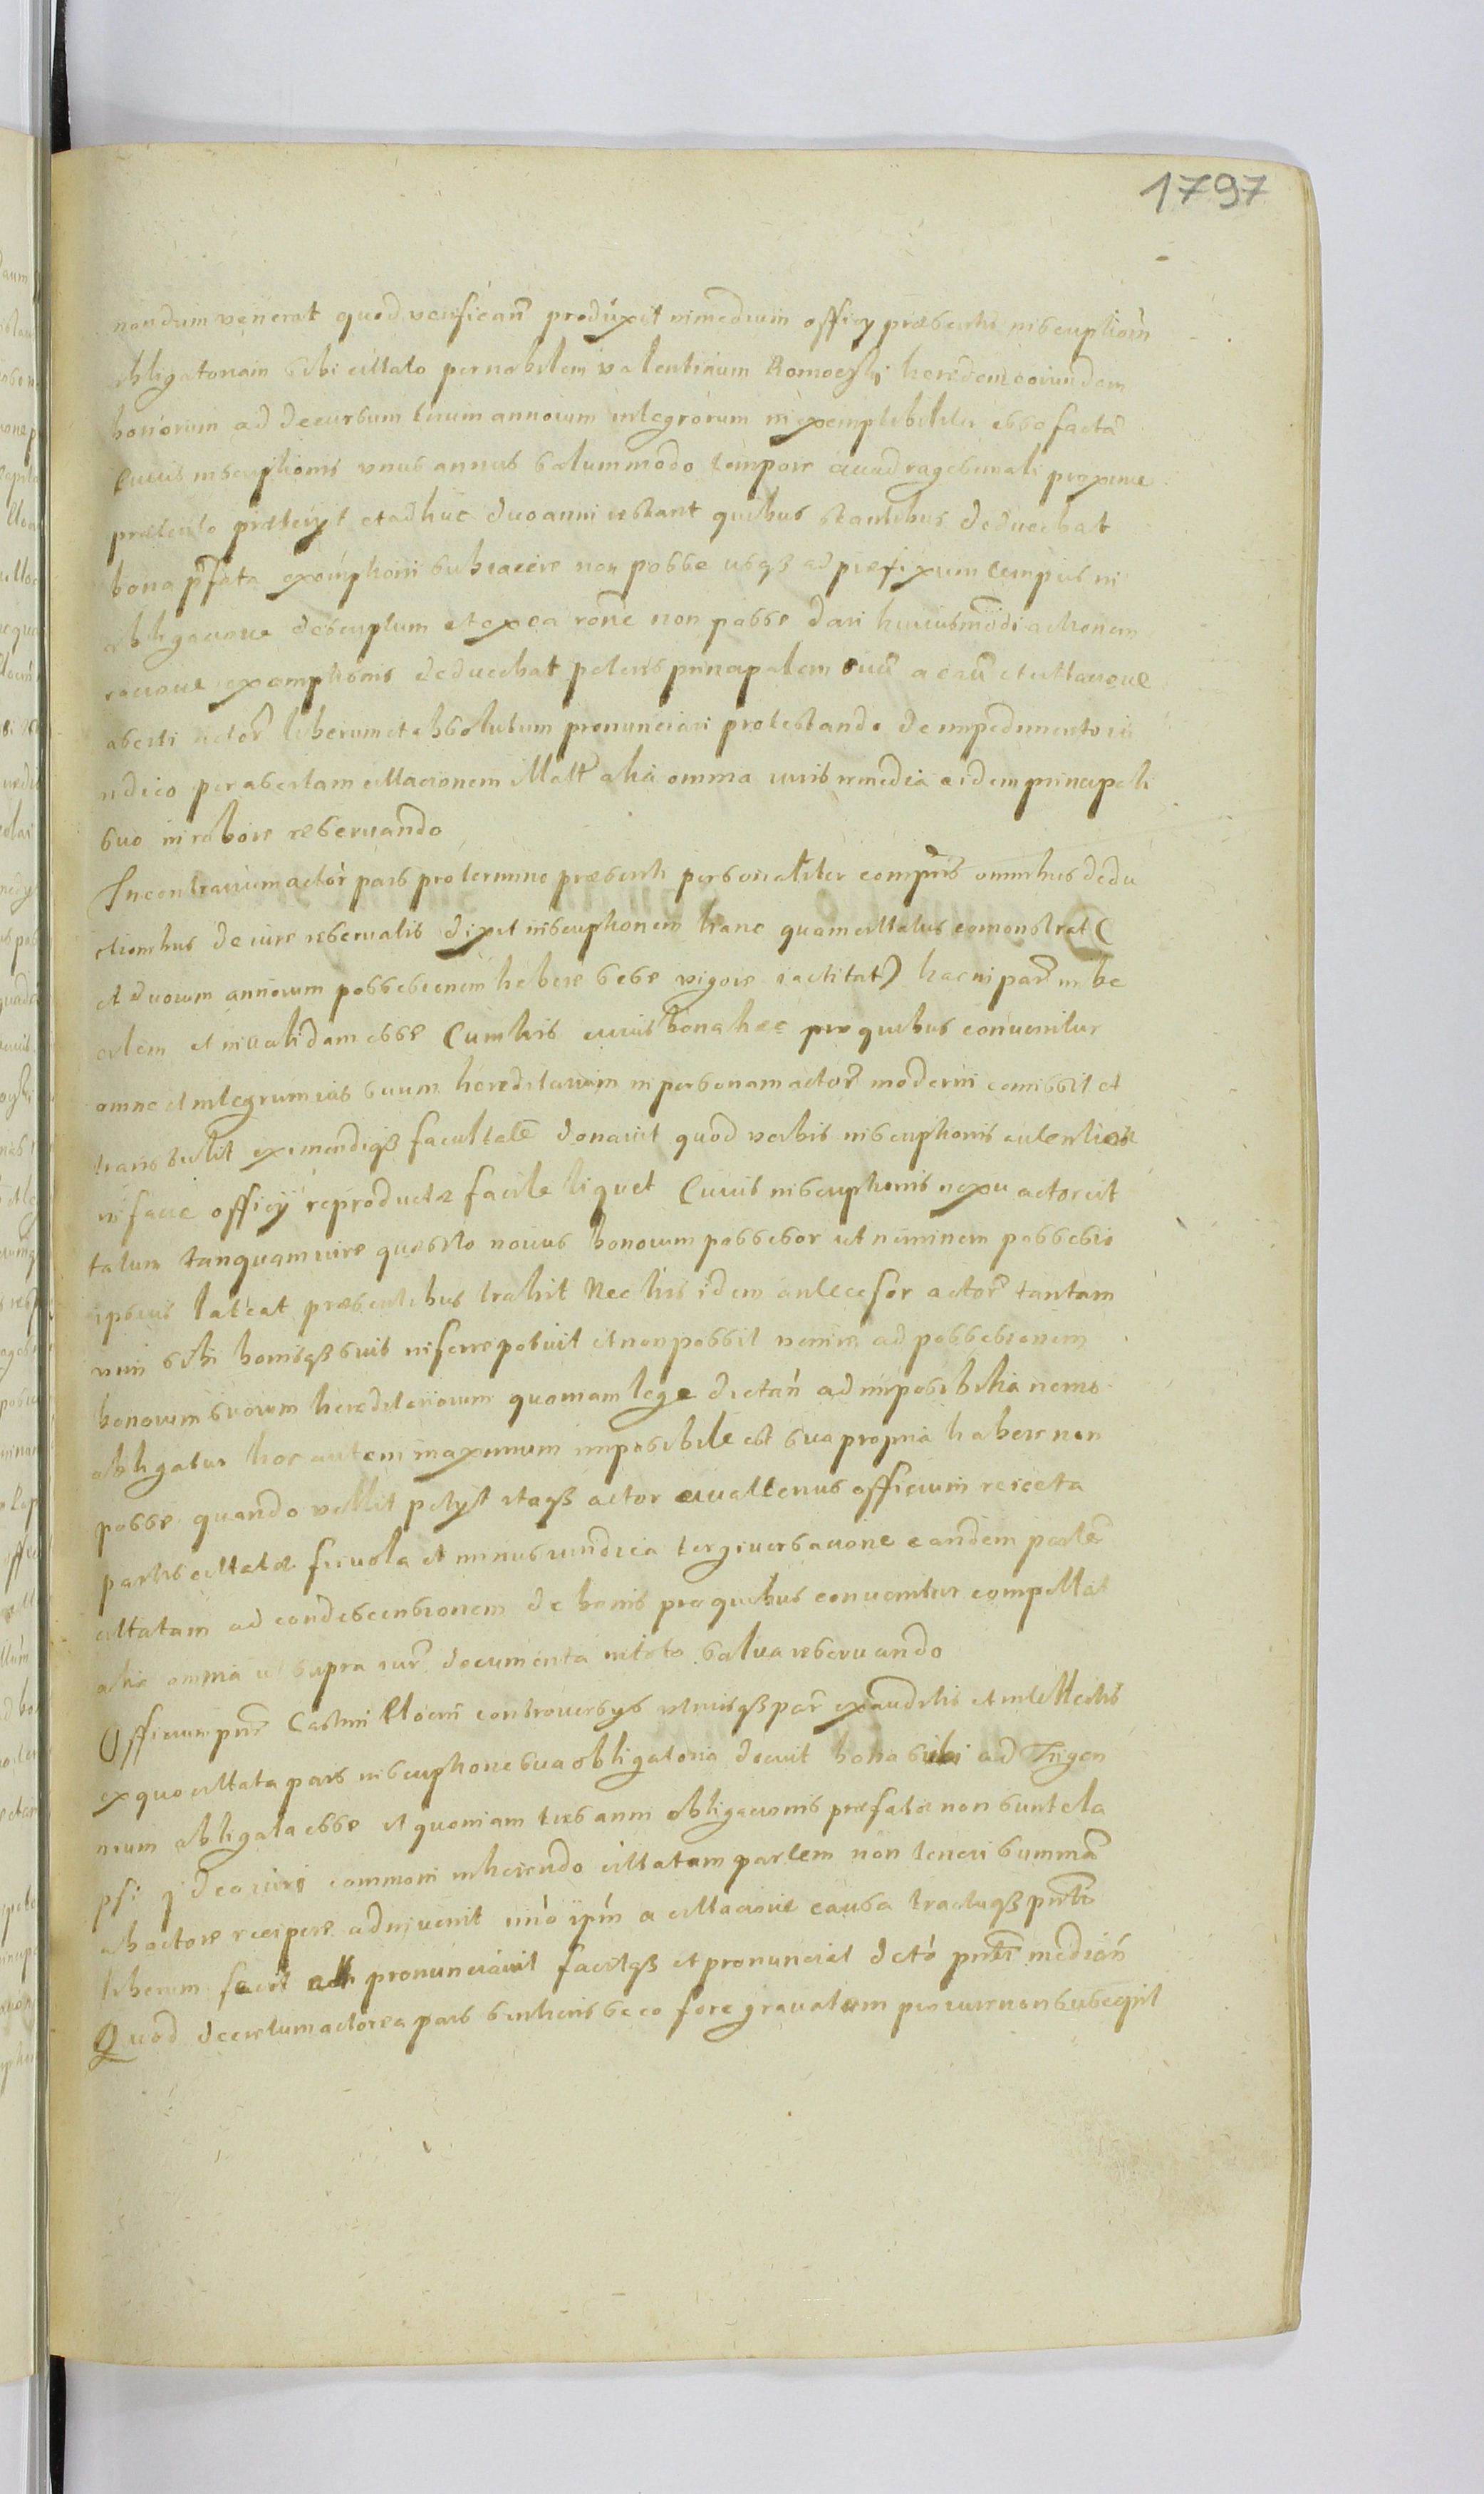 1797
nondum venerat quod verificans produxit in medium officy praesentis inscription
obligatoriam sibi citato per nobilem Valentinum Romocski heredem eorundem
bonorum ad decursum trium annorum integrorum in exemptibiliter esse facta
Cuius inscriptionis unus annus solummodo tempore quadragesimali proxime
praeterito praeteryt et adhuc duo anni restant quibus stantibus deducebat
bona pfata exemptioni subiacere non posse usqz ad praefixum tempus in
obligacione descriptum et ex ea rone non posse dari huiusmodi actionem
racione exemptionis deducebat petens principalem suu a cau et citacione
asserti actor liberum et absolutum pronunciari protestando de impedimento iu
ridico per assertam citacionem illatt alia omnia iuris remedia eidem principali
suo in robore reservando
In contrarium actor pars pro termino praesenti personaliter compns omnibus dedu
ctionibus de iure reservatis dixit inscriptionem hanc quam citatus comonstrat (
et duorum annorum possessionem habere sese vigore iactitat) hac in par in be
cilem et invalidam esse Cum his cuius bona haec pro quibus convenitur
omne et integrum ius suum hereditarium in personam actor moderni comissit et
transtulit eximendiqz facultate donavit quod verbis inscriptionis autenticae
in facie officy reproductae facile liquet Cuius inscriptionis nexu actor cit
tatum tanquam iure quaesito novus bonorum possessor ut neminem possessio
ipsius lateat praesentibus trahit Nec his idem antecesor actor tantam
vim sibi bonisqz suis inferre potuit et non possit venire ad possessionem
bonorum suorum hereditariorum quoniam lege dictan ad imposibilia nemo
obligatur hoc autem maximum imposibile est sua propria habere non
posse quando vellit petyt itaqz actor quattenus officium reiecta
partis citatae frivola et minus iuridica tergiversacione eandem parte
citatam ad condescensionem de bonis pro quibus convenitur compellat
alia omnia ut supra iur documenta in toto salva reservando
Officium pns Castrn Clocen controversys utriusqz par exauditis et intellectis
ex quo citata pars inscriptione sua obligatoria docuit bona sibi ad Trigen
nium obligata esse et quoniam tres anni obligacionis praefatae non sunt ela
psi ideo iuri communi inherendo citatam partem non teneri summa
ab actore recipere adinvenit imo ipm a citacione causa tractuqz pntis
liberum facit pronunciavit facitqz et pronunciat dcto pnti median
Quod decretum actorea pars sentiens se eo fore gravatum pro iure non suscepit